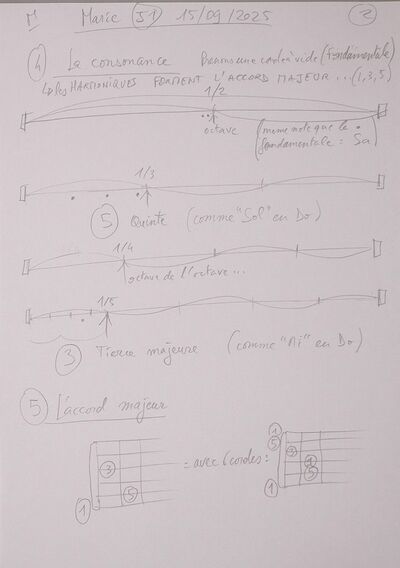 M Marie S1 15/09/2025 2
4 La consonance Prenons une corde à vide (fondamentale)
↳ les HARMONIQUES FORMENT L'ACCORD MAJEUR ... (1,3,5)
1/2
octave (même note que la
fondamentale : Sa)
1/3
5 Quinte (comme "Sol" en Do)
1/4
octave de l'octave ...
1/5
3 Tierce majeure (comme "Mi" en Do)
5 L'accord majeur
3
5
1
= avec 6 cordes :
1
5
3
1
5
1